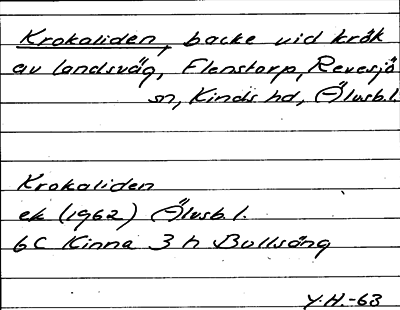 Krokaliden, backe vid krök
av landsväg, Flenstorp, Revesjö
sn, Kinds hd, Älvsb.l.
Krokaliden
ek (1962) Älvsb.l.
6C Kinna 3 h Bullsäng
Y.H.-63